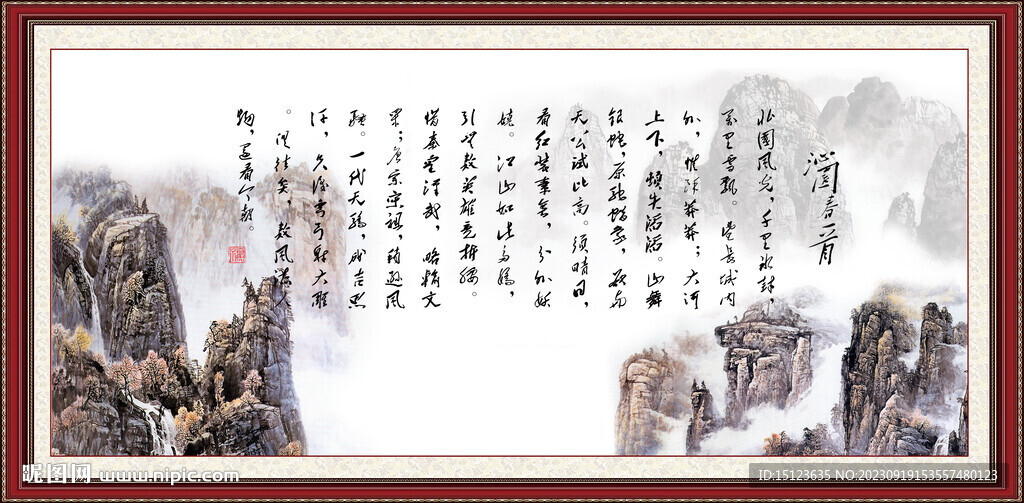 沁園春 雪
北國風光,千里冰封,
萬里雪飄。望長城内
外,惟余莽莽;大河
上下,頓失滔滔。山舞
銀蛇,原馳蠟象,欲与
天公試比高。須晴日,
看紅裝素裹,分外妖
嬈。江山如此多嬌,
引無數英雄競折腰。
惜秦皇漢武,略輸文
采;唐宗宋祖,稍遜風
騷。一代天驕,成吉思
汗,只識彎弓射大雕
。俱往矣,數風流人
物,還看今朝。
昵图网 www.nipic.com
ID:15123635 NO:20230919153557480123